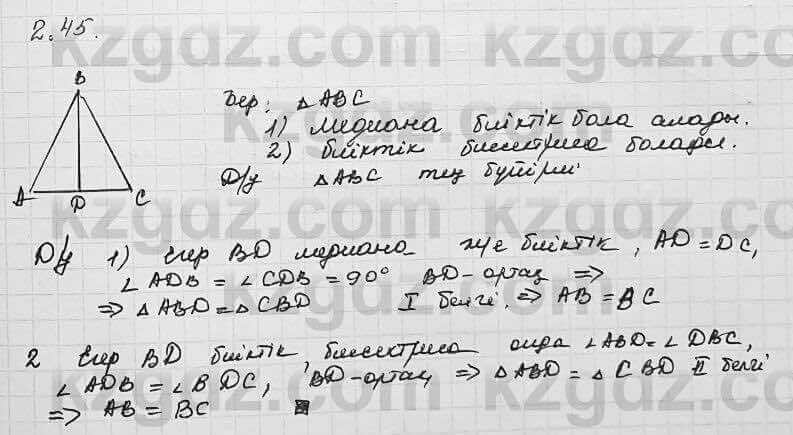 2.45.
B
Бер: △ABC
1) Медиана биіктік бола алады.
2) биіктік биссектриса болады.
A D C
Д/у △ABC тең бүйірлі
Д/у 1) Егер BD медиана және биіктік, AD = DC,
∠ADB = ∠CDB = 90° BD - ортақ =>
=> △ABD = △CBD I белгі. => AB = BC
2 Егер BD биіктік, биссектриса онда ∠ABD = ∠DBC,
∠ADB = ∠BDC, BD - ортақ => △ABD = △CBD II белгі
=> AB = BC
kzgdz.com kzgdz.com
kzgdz.com kzgdz.com
kzgdz.com kzgdz.com
kzgdz.com kzgdz.com
kzgdz.com kzgdz.com